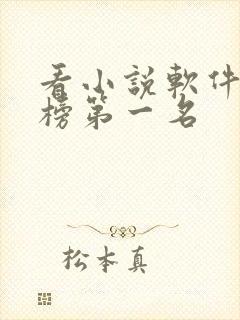 看小説軟件
榜第一名
松本真